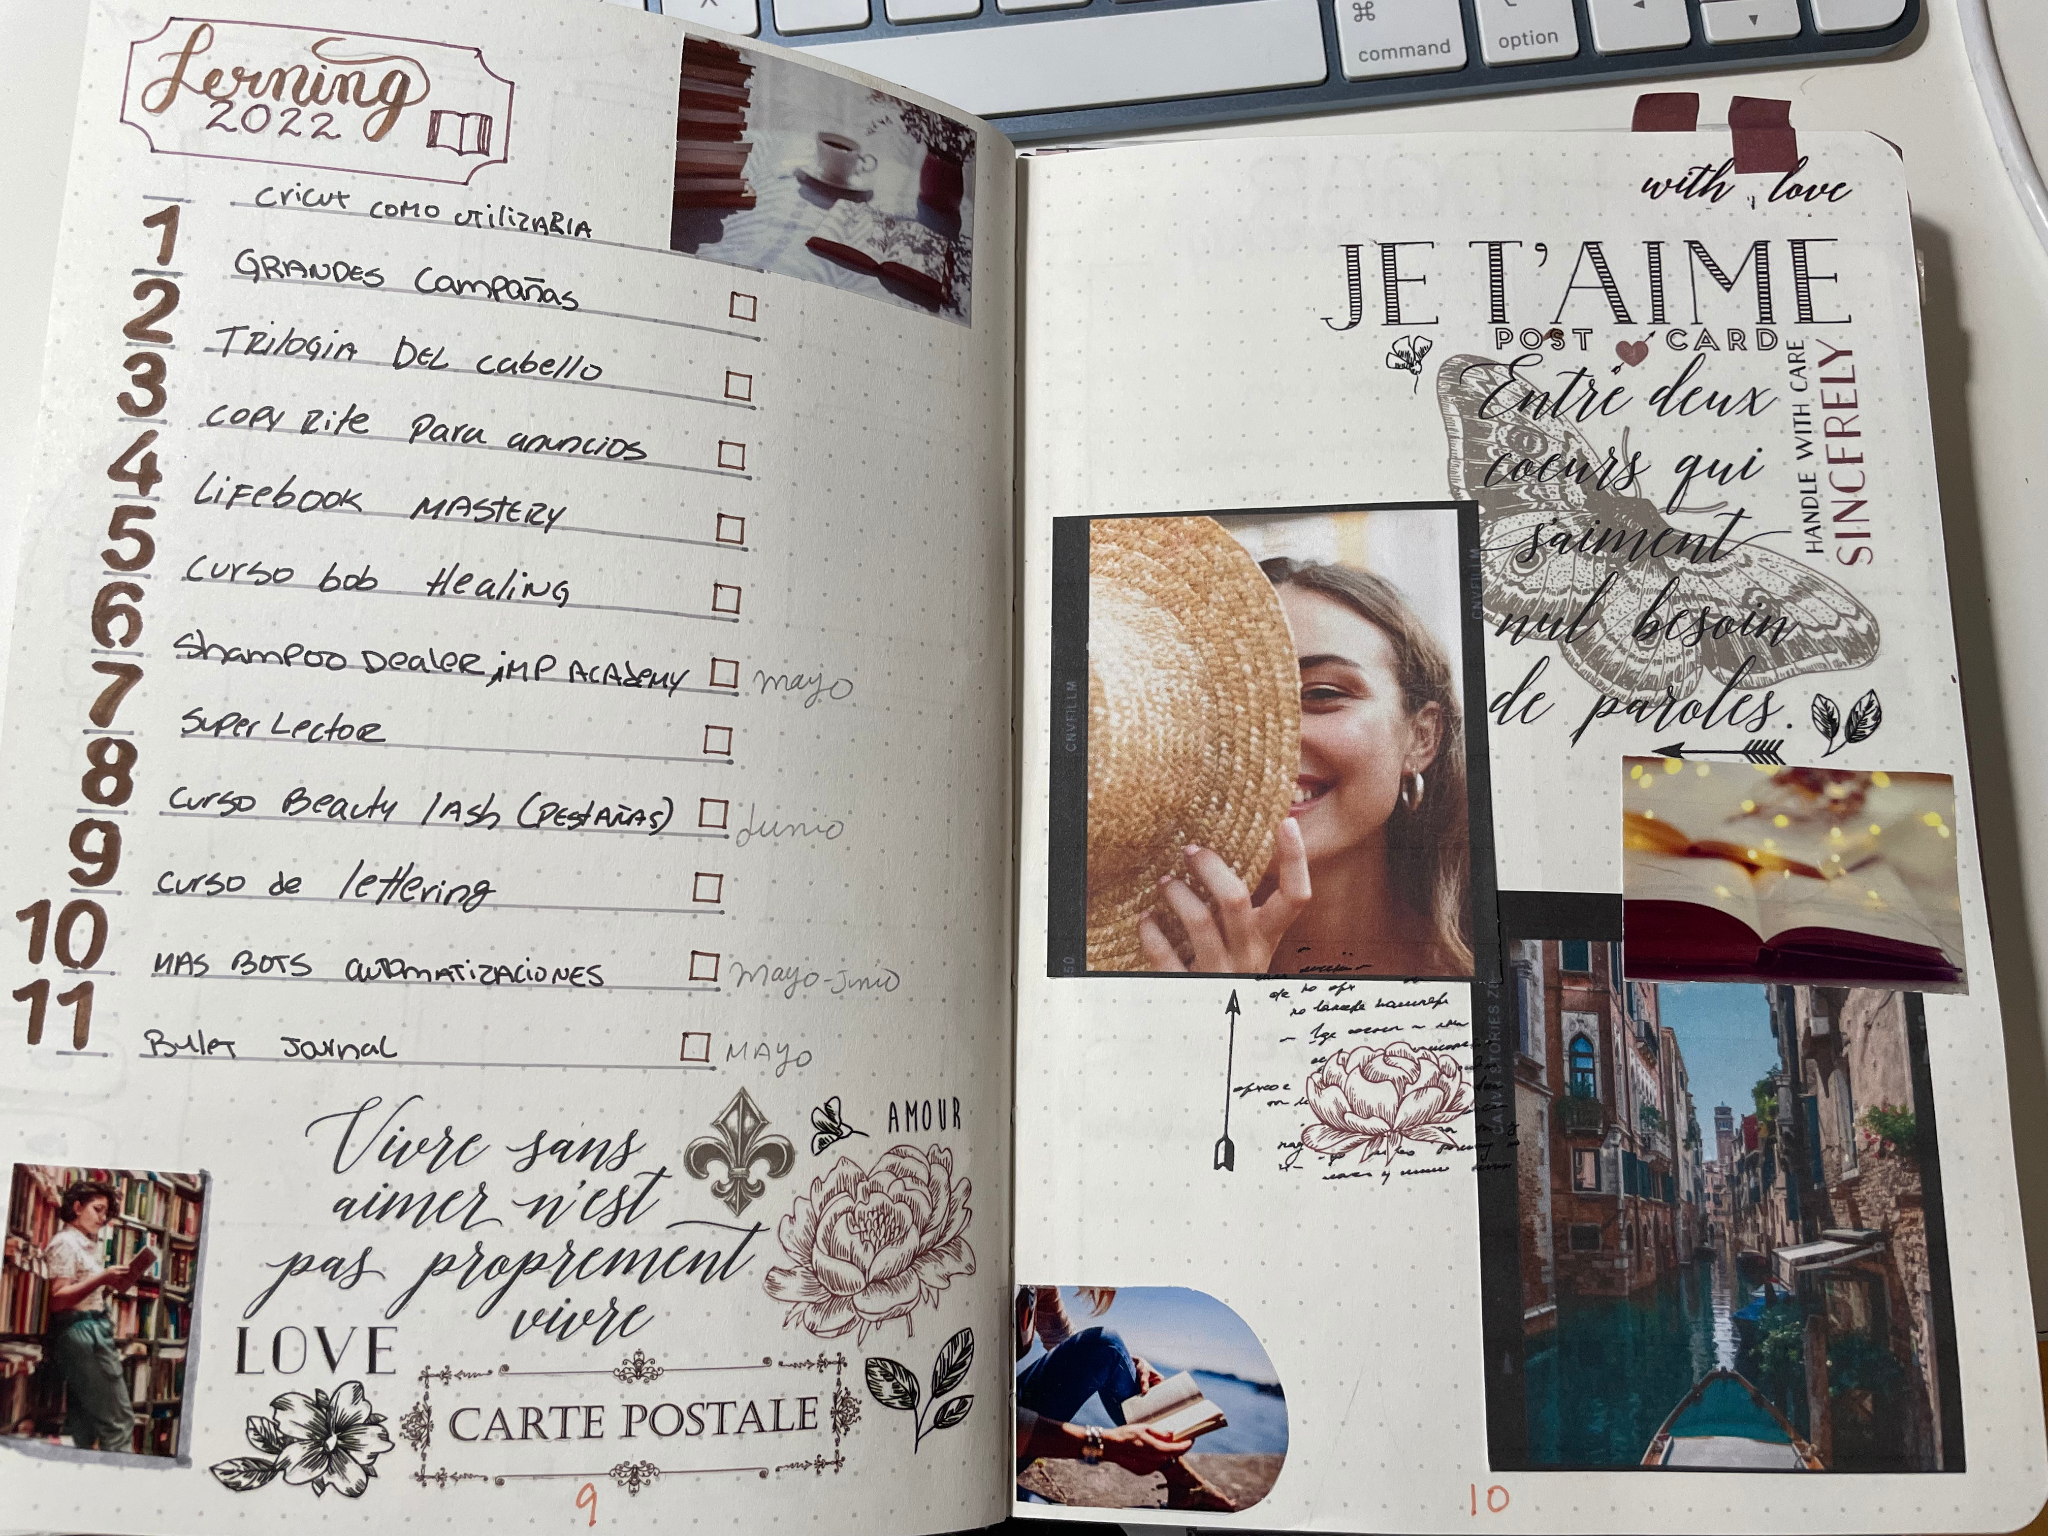 command
option
Lerning
2022
1
cricut como utilizarla
2
GRANDES Campañas
3
TRILOGIA DEL cabello
4
COPY RITE Para anuncios
5
LIFEBOOK MASTERY
6
CURSO bob Healing
7
Shampoo Dealer, IMP ACADEMY mayo
8
Super Lector
9
CURSO Beauty lash (PESTAÑAS) Junio
10
curso de lettering
11
MAS BOTS AUTOMATIZACIONES Mayo-Junio
Bullet Journal MAYO
Vivre sans
aimer n'est
pas proprement
vivre
AMOUR
LOVE
CARTE POSTALE
9
with love
JE T'AIME
POST CARD
Entre deux
coeurs qui
s'aiment
nul besoin
de paroles.
HANDLE WITH CARE
SINCERELY
CNVFILLM
CNVFILLM
50
10